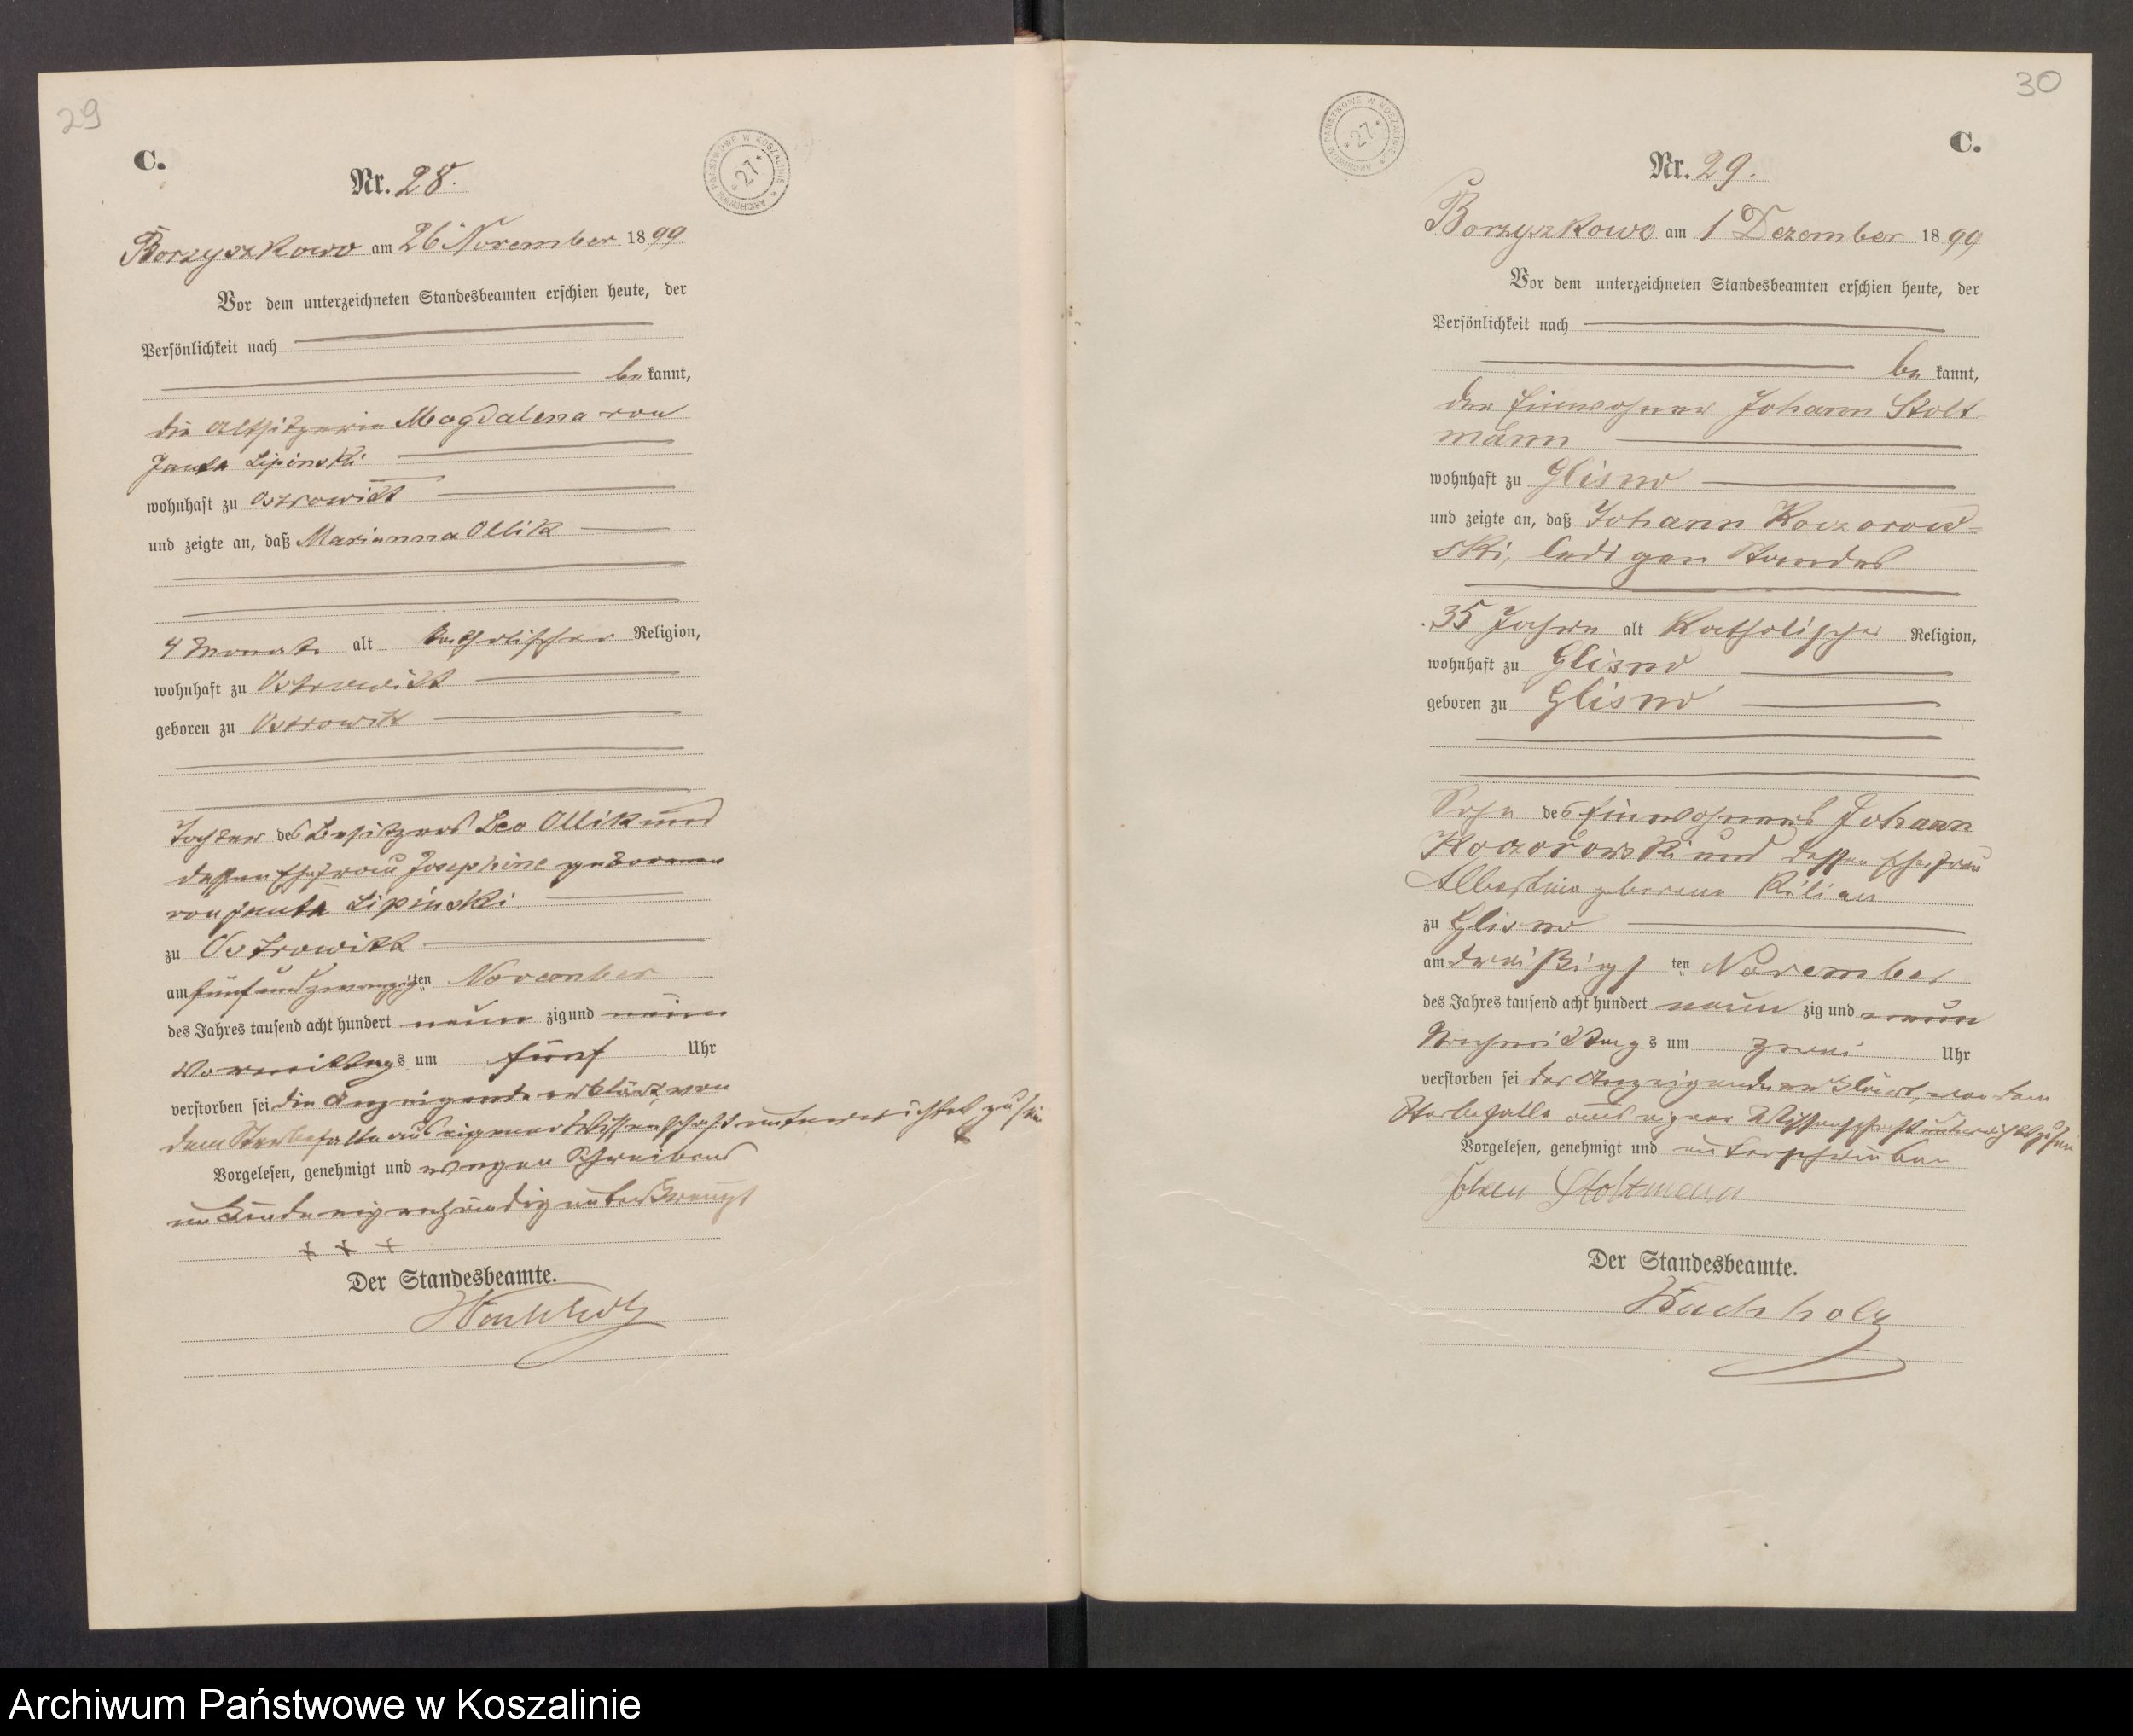 29
C.
Nr. 28.
ARCHIWUM PAŃSTWOWE W KOSZALINIE * 27 *
Borzyszkowo am 26 November 1899
Vor dem unterzeichneten Standesbeamten erschien heute, der
Persönlichkeit nach
bekannt,
die Altsitzerin Magdalena von
Janta Lipinski
wohnhaft zu Ostrowitt
und zeigte an, daß Marianna Ollik
4 Monate alt katholischer Religion,
wohnhaft zu Ostrowitt
geboren zu Ostrowitt
Tochter des Besitzers Leo Ollik und
dessen Ehefrau Josephine geborenen
von Janta Lipinski
zu Ostrowitt
am fünfundzwanzigsten November
des Jahres tausend acht hundert neunzig und neun
Vormittags um fünf Uhr
verstorben sei die Anzeigende erklärt, von
dem Sterbefalle aus eigener Wissenschaft unterrichtet zu sein
Vorgelesen, genehmigt und wegen Schreibens
unkunde eigenhändig unterkreuzt
+ + +
Der Standesbeamte.
Wachholz
30
C.
ARCHIWUM PAŃSTWOWE W KOSZALINIE * 27 *
Nr. 29.
Borzyszkowo am 1 Dezember 1899
Vor dem unterzeichneten Standesbeamten erschien heute, der
Persönlichkeit nach
bekannt,
der Einwohner Johann Stolt
mann
wohnhaft zu Glisno
und zeigte an, daß Johann Koczorow-
ski, ledigen Standes
35 Jahre alt Katholischer Religion,
wohnhaft zu Glisno
geboren zu Glisno
Sohn des Einwohners Johann
Koczorowski und dessen Ehefrau
Albertine geborene Kilian
zu Glisno
am dreißigsten November
des Jahres tausend acht hundert neunzig und neun
Nachmittags um zwei Uhr
verstorben sei der Anzeigende erklärt, von dem
Sterbefalle aus eigner Wissenschaft unterrichtet zu sein
Vorgelesen, genehmigt und unterschrieben
Johann Stoltmann
Der Standesbeamte.
Wachholz
Archiwum Państwowe w Koszalinie